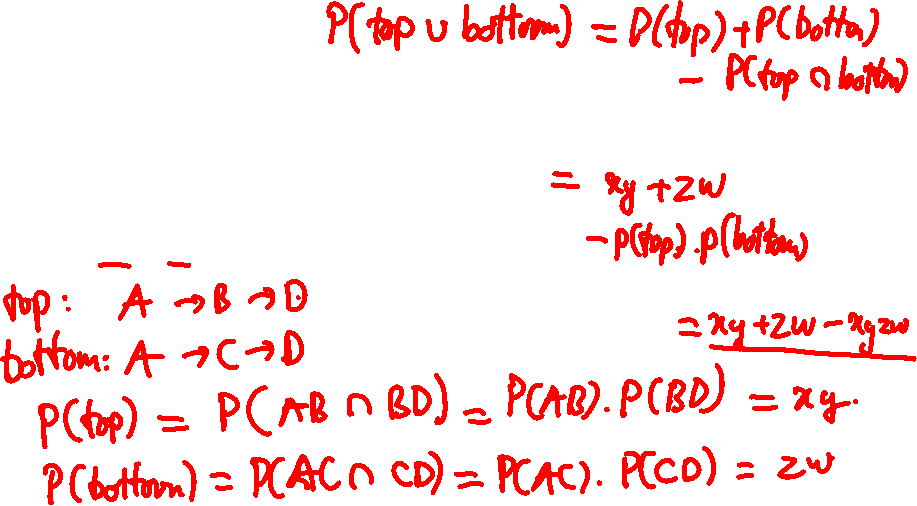 P(top ∪ bottom) = P(top) + P(botto)
- P(top ∩ bottom)
= xy + zw
- p(top). p(bottom)
top: A → B → D
= xy + zw - xyzw
bottom: A → C → D
P(top) = P(AB ∩ BD) = P(AB). P(BD) = xy.
P(bottom) = P(AC ∩ CD) = P(AC). P(CD) = zw